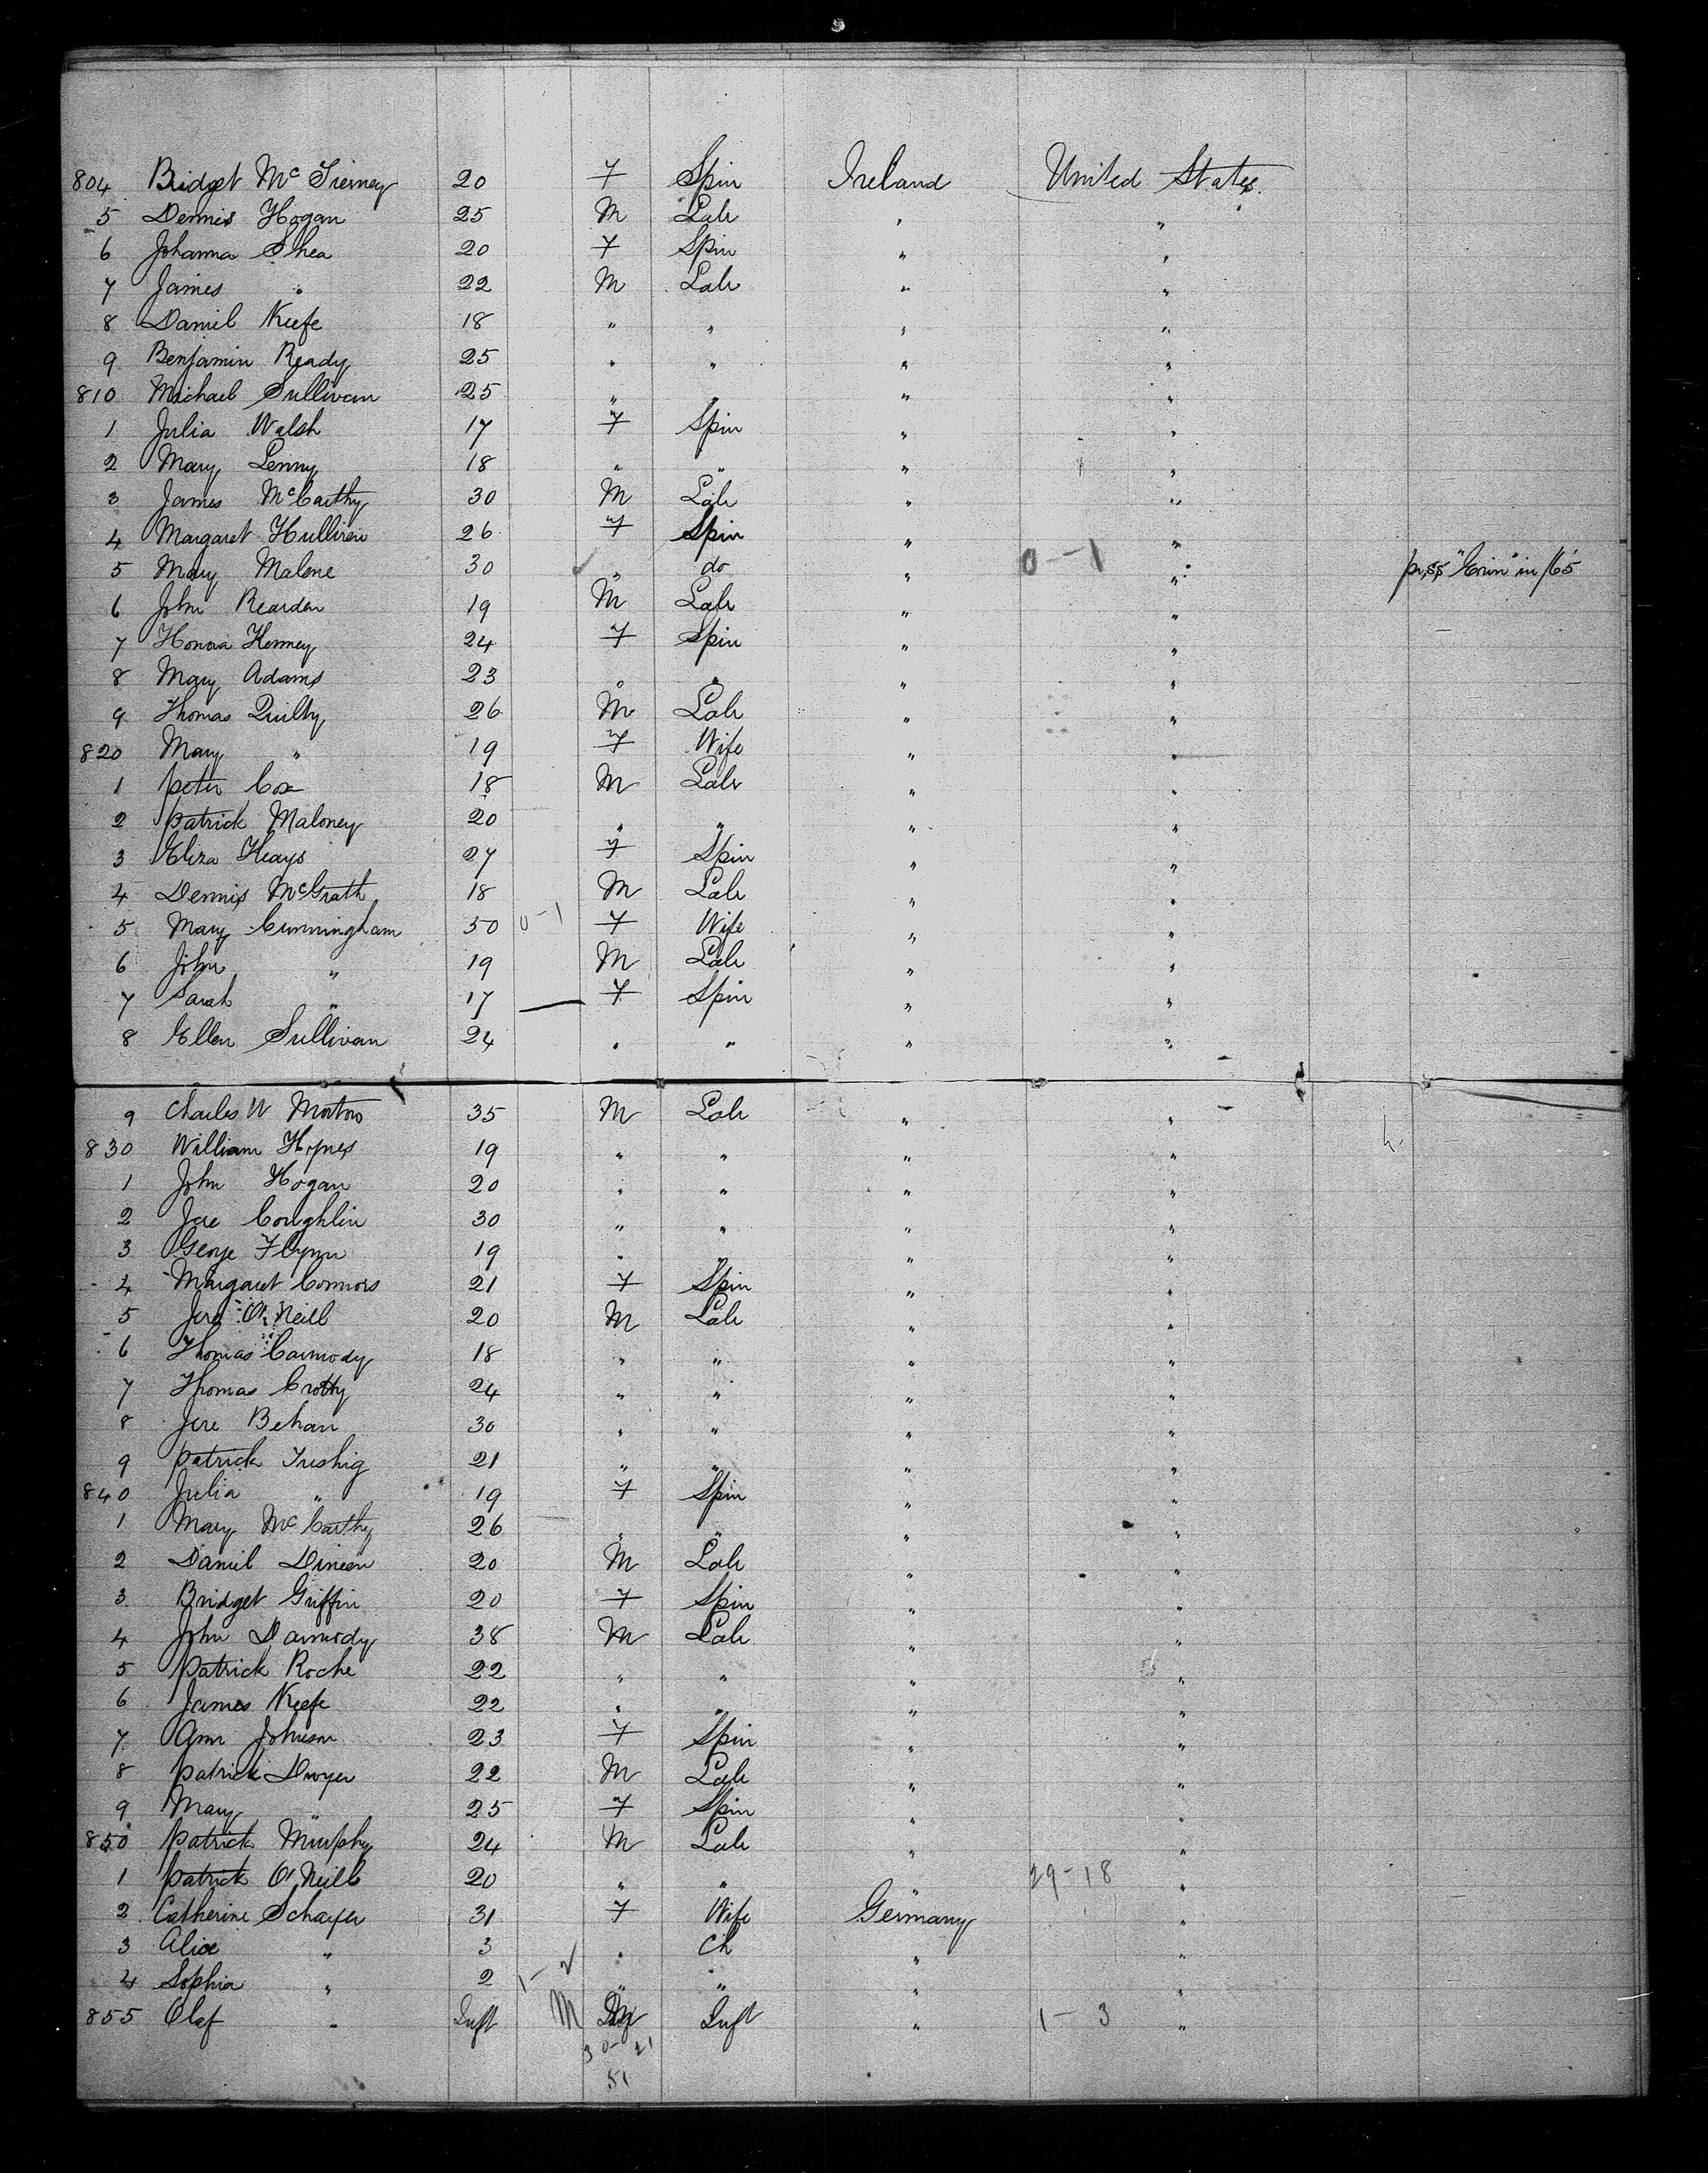 804 Bridget McTierney 20 F Spin Ireland United States
5 Dennis Hogan 25 M Lab " "
6 Johanna Shea 20 F Spin " "
7 James " 22 M Lab " "
8 Daniel Keefe 18 " " " "
9 Benjamin Ready 25 " " " "
810 Michael Sullivan 25 " " " "
1 Julia Walsh 17 F Spin " "
2 Mary Lenny 18 " " " "
3 James McCarthy 30 M Lab " "
4 Margaret 26 F Spin " "
5 Mary Malone 30 " do " 0-1 " pr, SS "Erin" in /65
6 John Rearden 19 M Lab " "
7 Honora Kenney 24 F Spin " "
8 Mary Adams 23 " " " "
9 Thomas Quilty 26 M Lab " "
820 Mary " 19 F Wife " "
1 Peter Cox 18 M Lab " "
2 Patrick Maloney 20 " " " "
3 Eliza Keays 27 F Spin " "
4 Dennis McGrath 18 M Lab " "
5 Mary Cunningham 50 0-1 F Wife " "
6 John " 19 M Lab " "
7 Sarah " 17 F Spin " "
8 Ellen Sullivan 24 " " " "
9 Charles W 35 M Lab " "
830 William Hynes 19 " " " "
1 John Hogan 20 " " " "
2 Jere Coughlin 30 " " " "
3 George Flynn 19 " " " "
4 Margaret Connors 21 F Spin " "
5 Jere O'Neill 20 M Lab " "
6 Thomas Carmody 18 " " " "
7 Thomas Crotty 24 " " " "
8 Jere Behan 30 " " " "
9 Patrick 21 " " " "
840 Julia " 19 F Spin " "
1 Mary McCarthy 26 " " " "
2 Daniel Dineen 20 M Lab " "
3 Bridget Griffin 20 F Spin " "
4 John Darmody 38 M Lab " "
5 Patrick Roche 22 " " " "
6 James Keefe 22 " " " "
7 Ann Johnson 23 F Spin " "
8 Patrick Dwyer 22 M Lab " "
9 Mary " 25 F Spin " "
850 Patrick Murphy 24 M Lab " "
1 Patrick O'Neill 20 " " " 29-18 "
2 Catherine Schayer 31 F Wife Germany "
3 Alice " 3 " Ch " "
4 Sophia " 2 " " " "
855 Olaf " Inft M Inft " 1-3 "
30-21
51